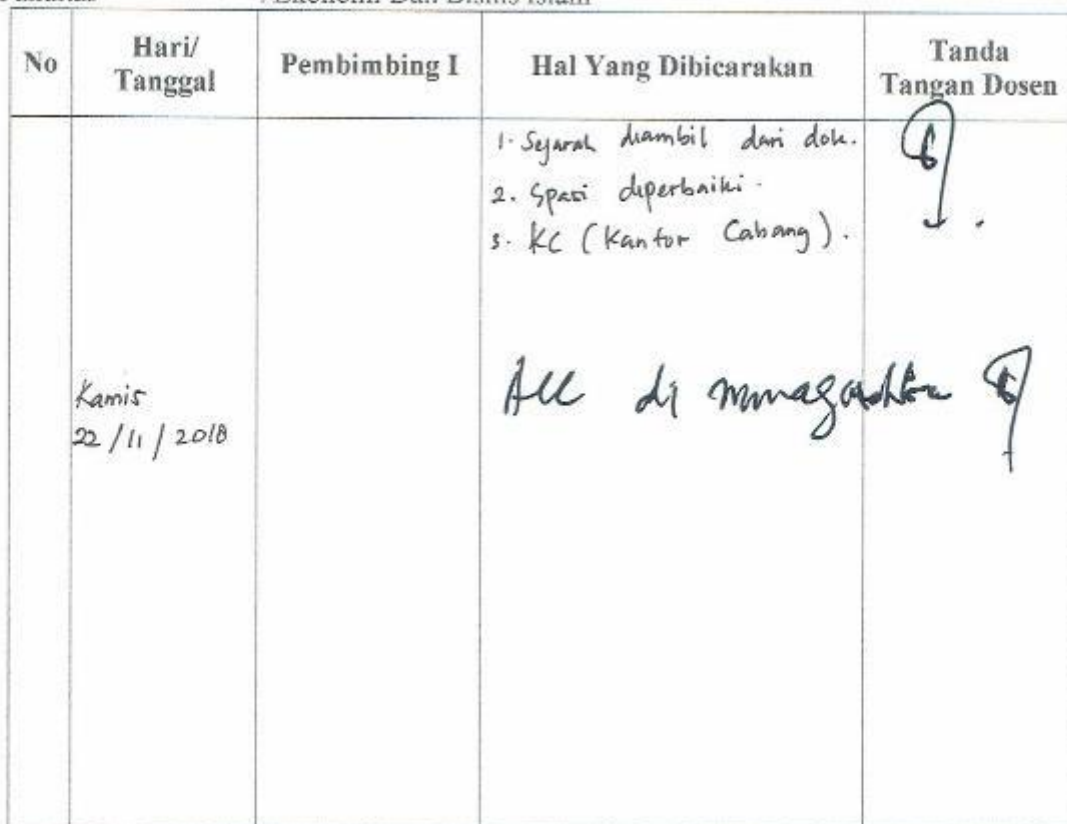 : Ekonomi Dan Bisnis Islam
No
Hari/
Tanggal
Pembimbing I
Hal Yang Dibicarakan
Tanda
Tangan Dosen
1. Sejarah diambil dari dok.
2. Spasi diperbaiki.
3. KC (Kantor Cabang).
Kamis
22/11/2018
Acc di